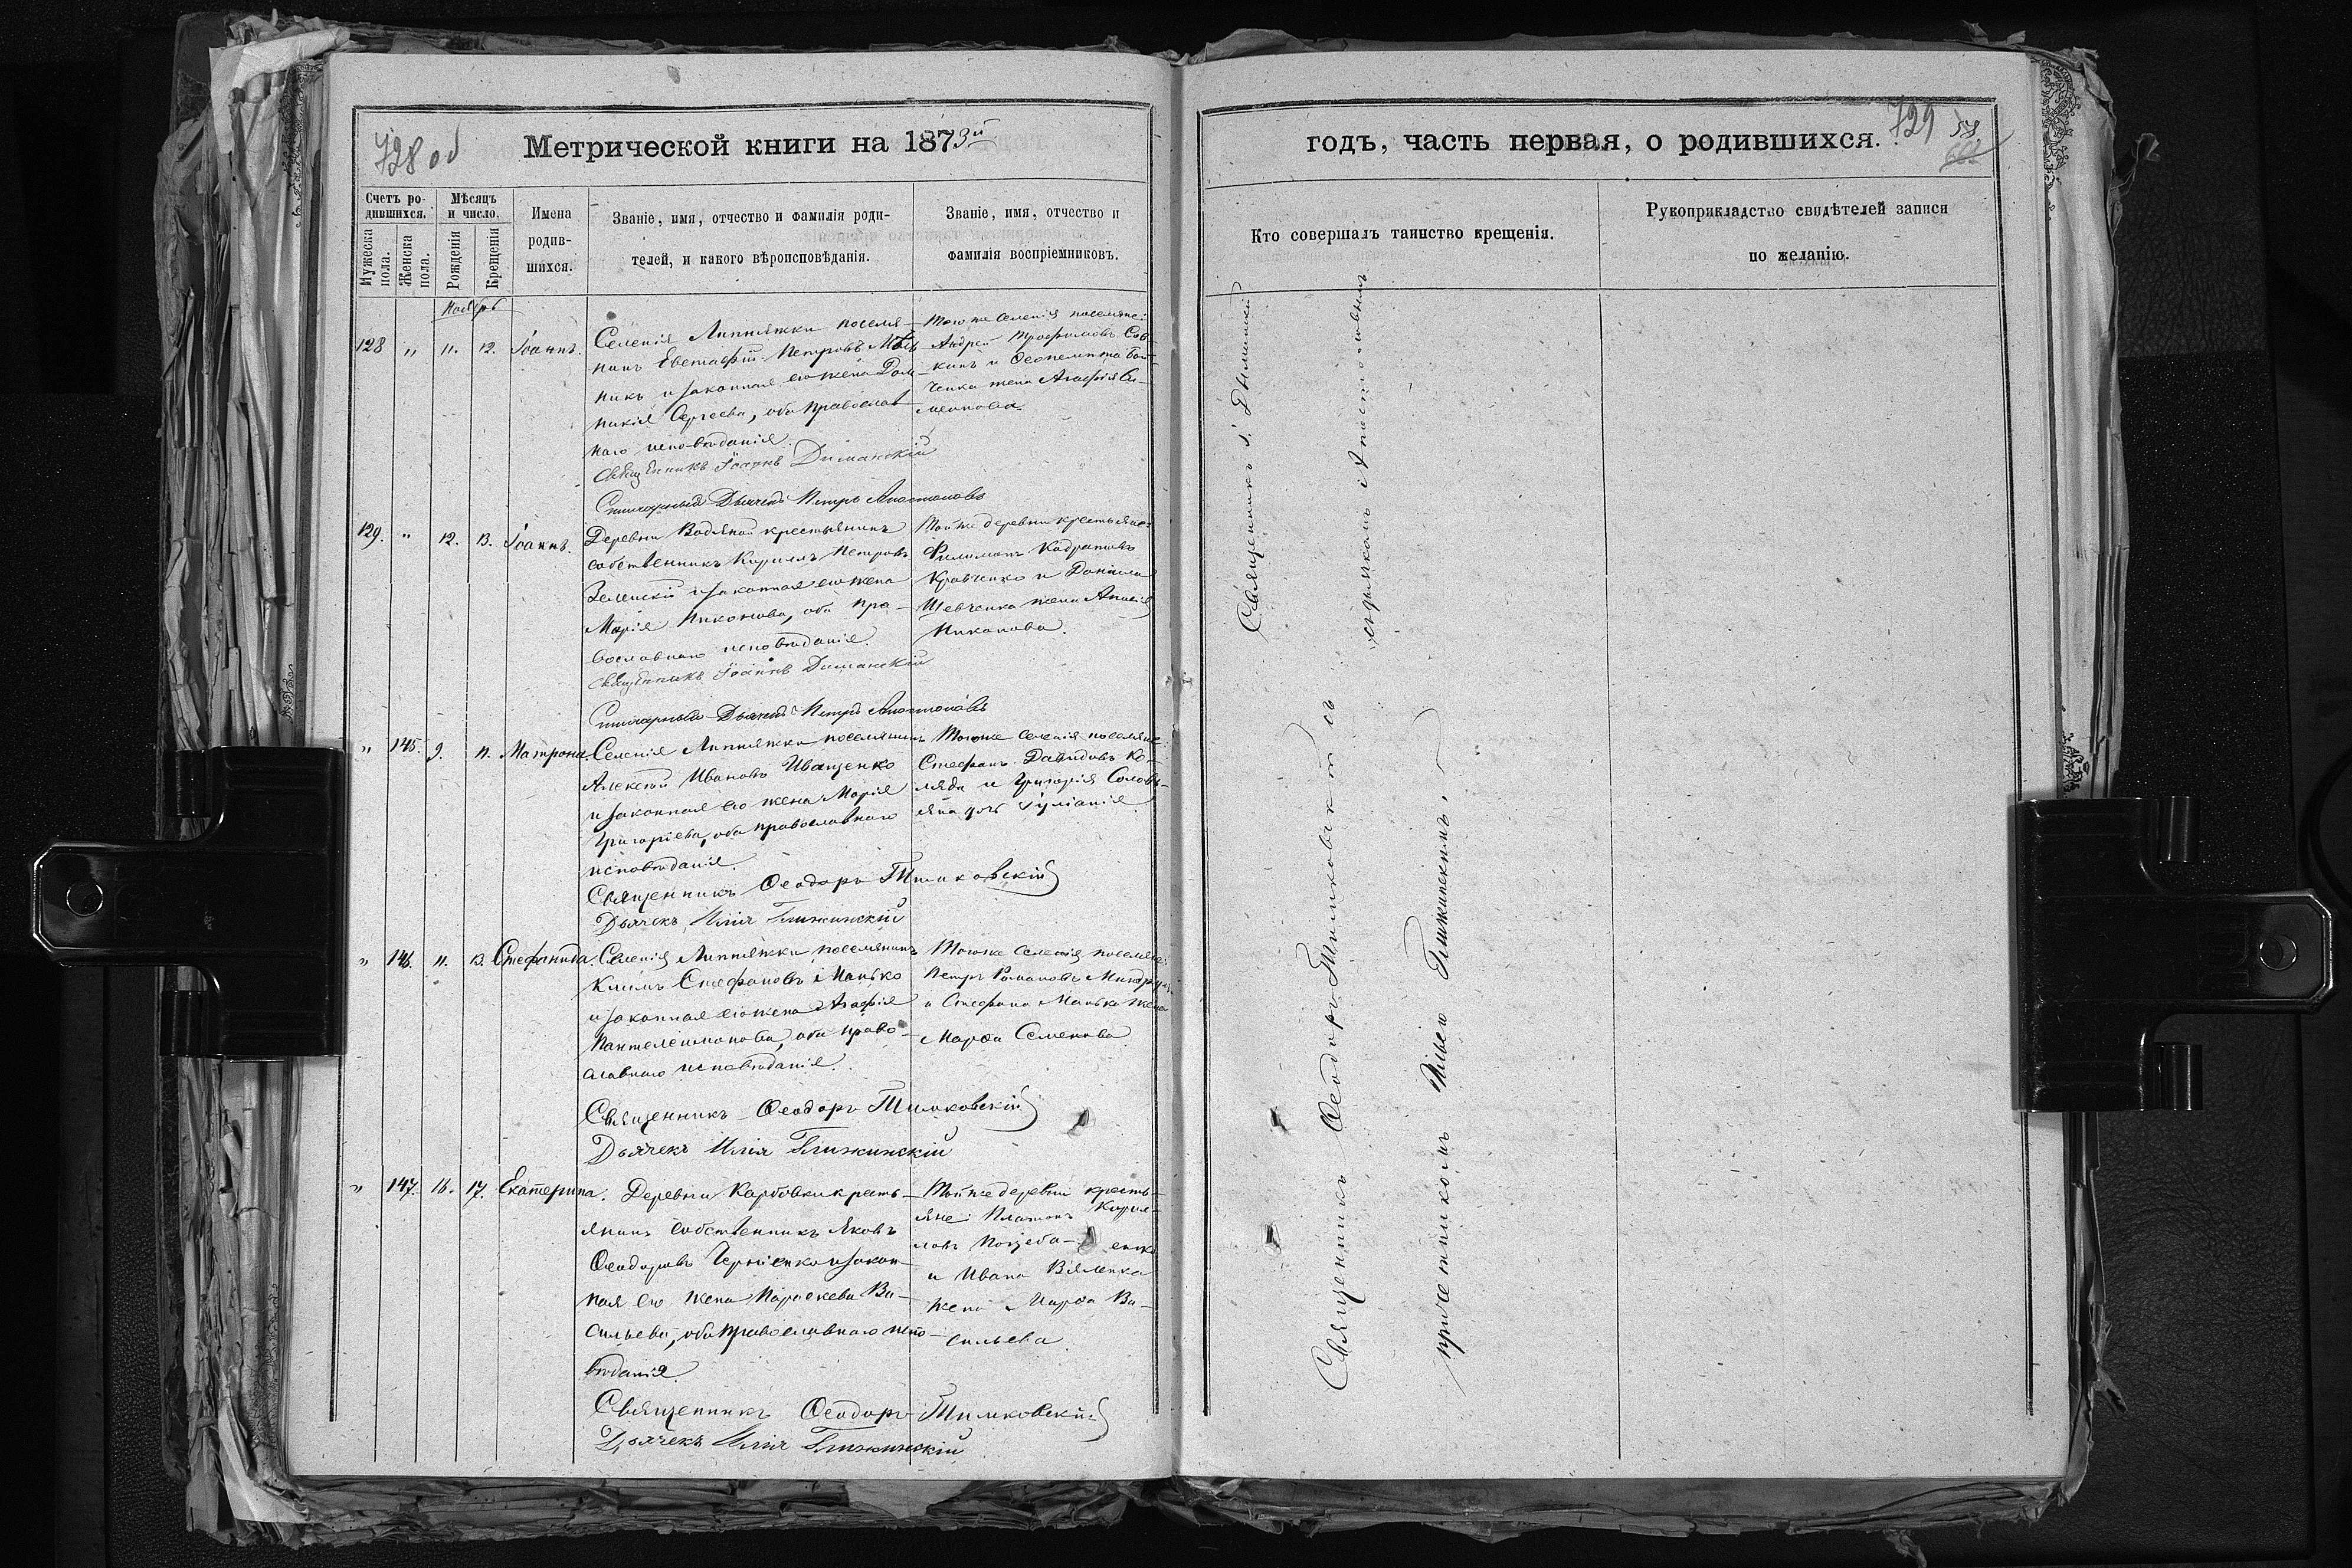 728 об
Метрической книги на 1873й
Счетъ ро-
дившихся.
Мѣсяцъ
и число.
Мужеска
пола.
Женска
пола.
Рожденія
Крещенія
Имена
родив-
шихся.
Званіе, имя, отчество и фамилія роди-
телей, и какого вѣроисповѣданія.
Званіе, имя, отчество и
фамилія воспріемниковъ.
Ноябрь
128 " 11. 12. Іоаннъ.
Селенія Липняжки поселя-
нинъ Евстафій Петровъ
никъ и законная его жена Дом-
никія Сергеева, оба православ-
наго исповѣданія.
Священникъ Іоаннъ Диманскій
Дьячекъ Петръ Апостоловъ
Того же селенія поселяне:
Андрей Трофимовъ Сав-
кинъ и Феопемпта Бой-
ченка жена Агафія Си-
меонова
129. " 12. 13. Іоаннъ.
Деревни Водяной крестьянинъ
собственникъ Кириллъ Петровъ
Зеленскій и законная его жена
Марія Никонова, оба пра-
вославнаго исповѣданія.
Священникъ Іоаннъ Диманскій
Дьячекъ Петръ Апостоловъ
Той же деревни крестьяне:
Филимонъ Кодратовъ
Кравченко и Даніила
Шевченка жена Анисія
Никонова.
" 145. 9. 11. Матрона.
Селенія Липняжки поселянинъ
Алексѣй Ивановъ Иващенко
и законная его жена Марія
Григоріева, оба православнаго
исповѣданія.
Священникъ Ѳеодоръ Тимковскій
Дьячекъ Илія Глижинскій
Того же селенія поселяне:
Стефанъ Давидовъ Ко-
ляда и Григорія Соловь-
яна дочь Іуліанія
" 146. 11. 13. Стефанида.
Селенія Липняжки поселянинъ
Климъ Стефановъ Манько
и законная его жена Агафія
Пантелеимонова, оба право-
славнаго исповѣданія.
Священникъ Ѳеодоръ Тимковскій
Дьячекъ Илія Глижинскій
Того же селенія поселяне:
Петръ Романовъ
и Стефана Манька жена
Марѳа Семенова
" 147. 16. 17. Екатерина.
Деревни Карбовки кресть-
янинъ собственникъ Яковъ
Ѳеодоровъ Черніенко и закон-
ная его жена Параскева Ва-
сильева, оба православнаго испо-
вѣданія.
Священникъ Ѳеодоръ Тимковскій
Дьячекъ Илія Глижинскій
Той же деревни кресть-
яне: Платонъ Кирил-
ловъ
и Ивана
жена Марѳа Ва-
сильева
годъ, часть первая, о родившихся.
729
58
Кто совершалъ таинство крещенія.
Рукоприкладство свидѣтелей записи
по желанію.
Священникъ І. Диманскій
съ дьячкомъ Апостоловымъ
Священникъ Ѳеодоръ Тимковскій съ
причетникомъ Иліею Глижинскимъ.